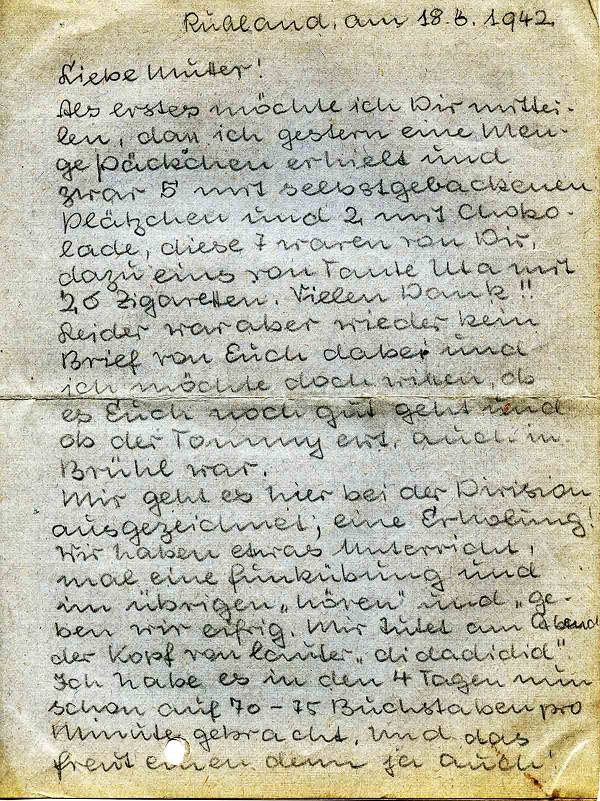 Rußland, am 18.6.1942.
Liebe Mutter!
Als erstes möchte ich Dir mittei-
len, daß ich gestern eine Men-
ge Päckchen erhielt und
zwar 5 mit selbstgebackenen
Plätzchen und 2 mit Choko-
lade, diese 7 waren von Dir,
dazu eins von Tante Uta mit
20 Zigaretten. Vielen Dank!!
Leider war aber wieder kein
Brief von Euch dabei und
ich möchte doch wißen, ob
es Euch noch gut geht und
ob der Tommy evt. auch in
Brühl war.
Mir geht es hier bei der Division
ausgezeichnet; eine Erholung!
Wir haben etwas Unterricht,
mal eine Funkübung und
im übrigen „hören" und „ge-
ben wir eifrig. Mir tutet am Abend
der Kopf von lauter „didadidid"
Ich habe es in den 4 Tagen nun
schon auf 70-75 Buchstaben pro
Minute gebracht. Und das
freut einen denn ja auch!